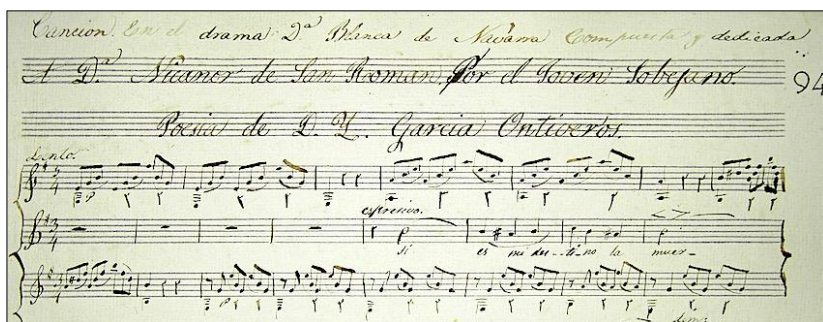 Cancion. En el drama D.ª Blanca de Navarra Compuesta y dedicada
A D.ª Nicanor de San Roman. Por el Joven Sobejano.
94
Poesia de D. L. Garcia Ontiveros.
Lento.
p
espresivo.
p
Si es mi des-ti-no la muer-
dim: